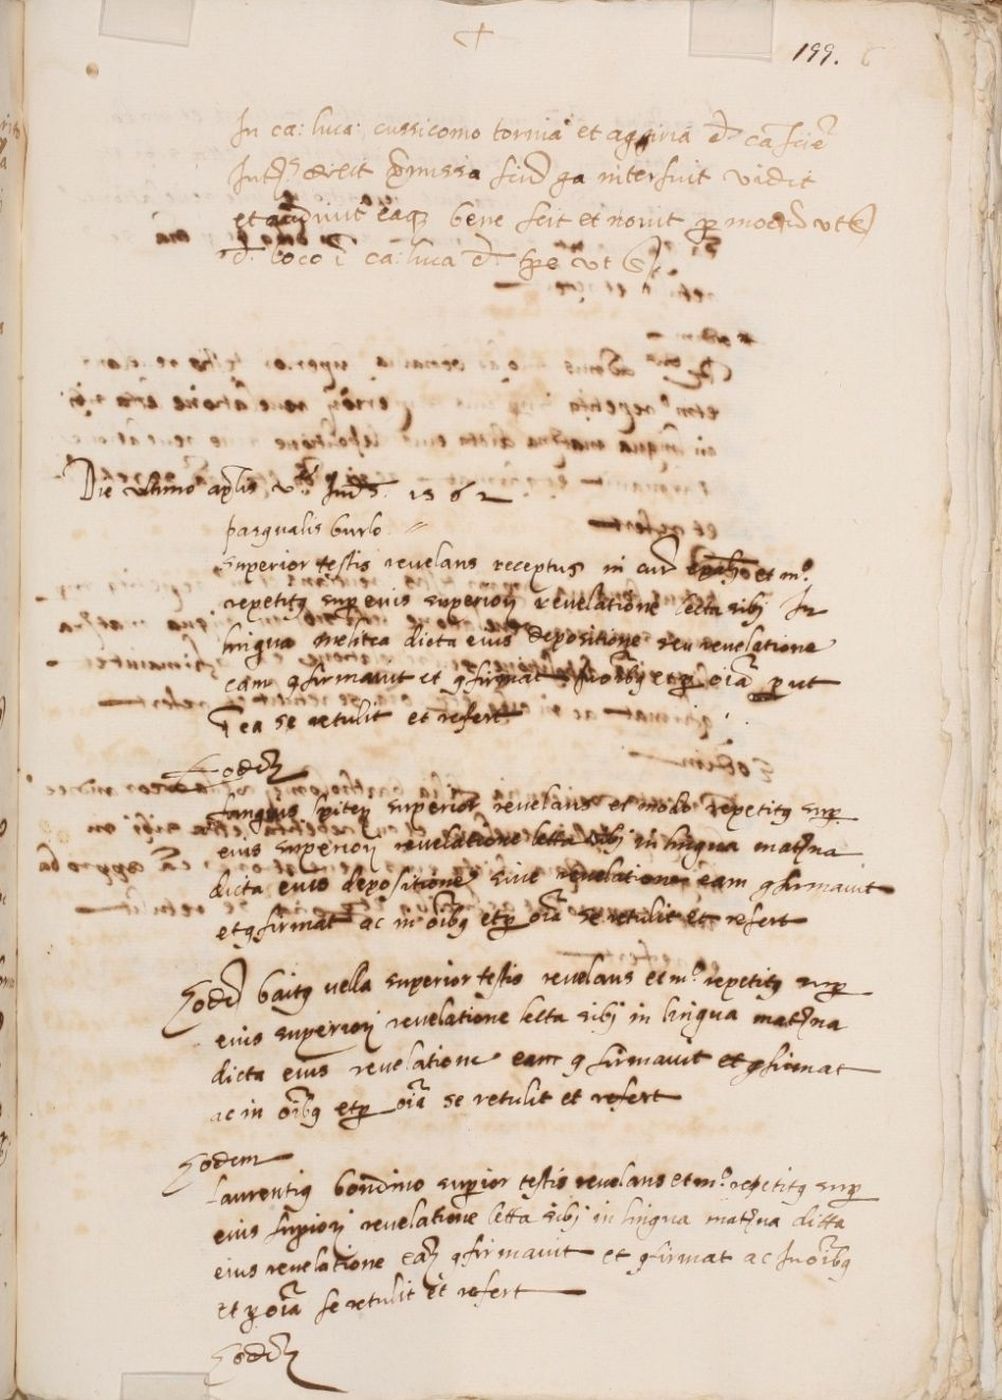 199.
In ca: luca: cussicomo tornia et aggiria d. ca scie
Int. dixit premissa sciri qa interfuit vidit
et audivit eaq bene scit et novit p modu ut s
d. loco i ca: luca d. tpe ut s
Die ultimo aplis v Inds. 1562
pasqualis burlo
superior testis revelans receptus in cur et m.º
repetitq sup eius superiori revelatione lecta sibj In
lingua melitea dicta eius depositione seu revelatione
eam gfirmavit et gfirmat In oibq et p oia put
ea se retulit et refert
Eodem
superior revelans et modo repetitq sup
eius superiori revelatione letta sibj in lingua materna
dicta eius depositione sive revelatione eam gfirmavit
et gfirmat ac in oibq et p oia se retulit et refert
Eodem baitq vella superior testis revelans et m.º repetitq sup
eius superiori revelatione lecta sibj in lingua materna
dicta eius revelatione eam gfirmavit et gfirmat
ac in oibq et p oia se retulit et refert
Eodem
laurentiq bondino superior testis revelans et m.º repetitq sup
eius superiori revelatione letta sibj in lingua materna ditta
eius revelatione eam gfirmavit et gfirmat ac In oibq
et p oia se retulit et refert
Eodem